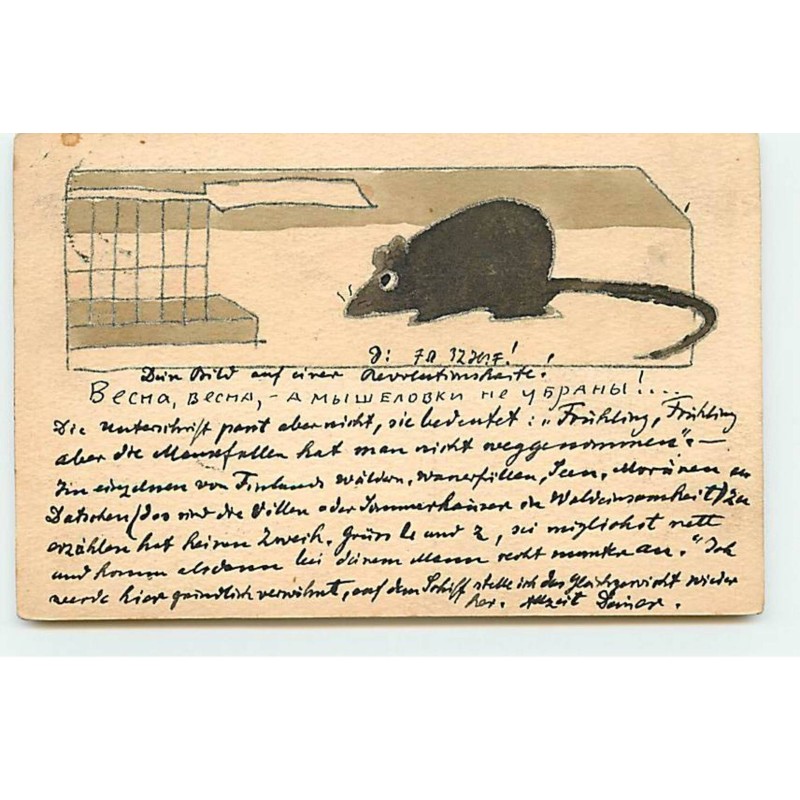 Dein Bild auf einer Revolutionskarte!
Весна, весна, – а мышеловки не убраны!...
Die Unterschrift passt aber nicht, sie bedeutet: „Frühling, Frühling
aber die Mausefallen hat man nicht weggenommen". –
Im einzelnen von Finlands Wäldern, Wasserfällen, Seen, Moränen an
Datschen (das sind die Villen oder Sommerhäuser in Waldeinsamkeit) zu
erzählen hat keinen Zweck. Grüss L und Z, sei möglichst nett
und komm alsdann bei deinem Mann recht munter an." Ich
werde hier gründlich verwöhnt, auf dem Schiff stelle ich das Gleichgewicht wieder
her. Allzeit Deiner.